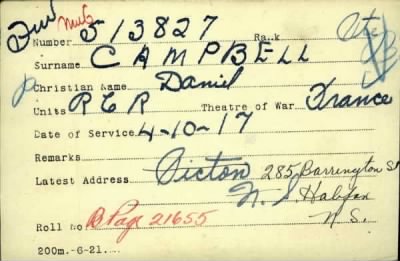 Number 513827 Rank Pte
Surname CAMPBELL
Christian Name Daniel
Units RCR Theatre of War France
Date of Service 4-10-17
Remarks
Latest Address Pictou 285 Barrington St
N.S. Halifax
N.S.
Roll No B Page 21655
200m.-6-21.